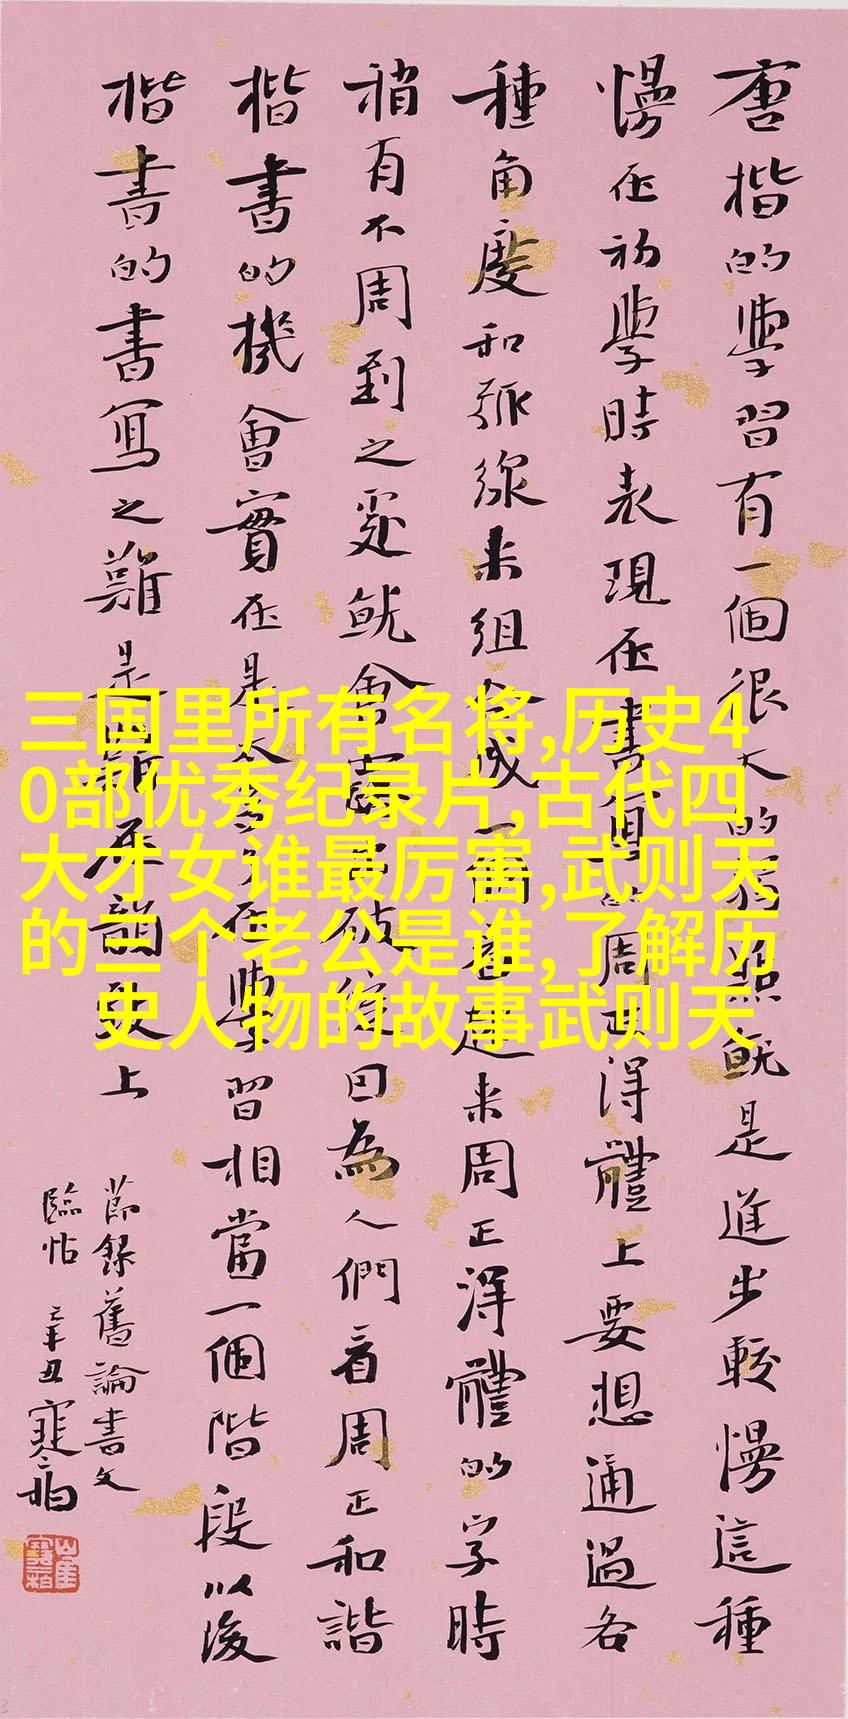 唐楷的學習有一個很大的弱點就是進步較慢這種
慢在初學時表現在書寫的周正得體上要想通過各
種角度和弧線来組合成一個看起来周正得體的字時
稍有不周到之處就會露出破綻因為人們看周正和諧
楷書的機會實在是太多了在學習相當一個階段以後
楷書的書寫之難是
上
節録舊論書文
臨帖 辛丑寒
三国里所有名将,历史4
0部优秀纪录片,古代四
大才女谁最厉害,武则天
的三个老公是谁,了解历
史人物的故事武则天